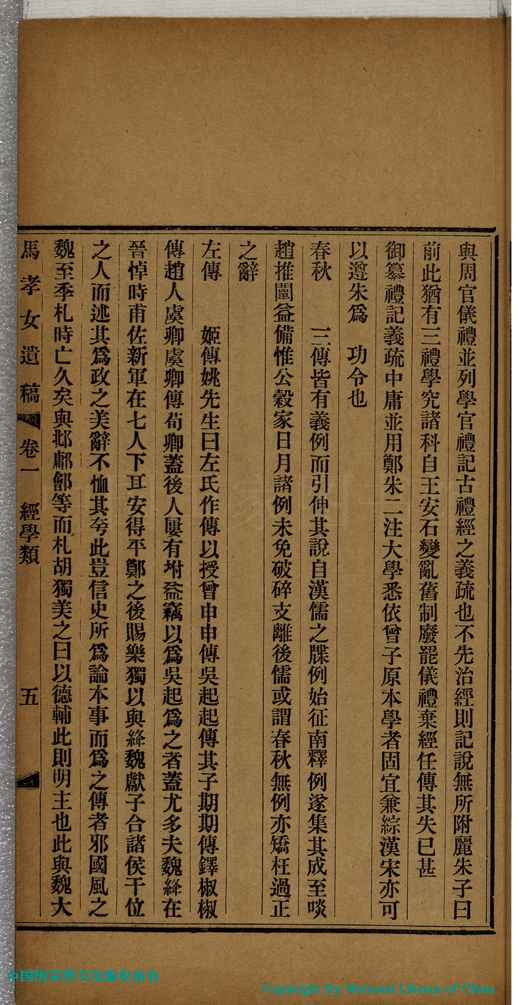 與周官儀禮並列學官禮記古禮經之義疏也不先治經則記說無所附麗朱子曰
前此猶有三禮學究諸科自王安石變亂舊制廢罷儀禮棄經任傳其失已甚
御纂禮記義疏中庸並用鄭朱二注大學悉依曾子原本學者固宜兼綜漢宋亦可
以遵朱爲　功令也
春秋　三傳皆有義例而引伸其說自漢儒之牒例始征南釋例遂集其成至啖
趙推闡益備惟公穀家日月諸例未免破碎支離後儒或謂春秋無例亦矯枉過正
之辭
左傳　姬傳姚先生曰左氏作傳以授曾申申傳吳起起傳其子期期傳鐸椒椒
傳趙人虞卿虞卿傳荀卿蓋後人屢有坿益竊以爲吳起爲之者蓋尤多夫魏絳在
晉悼時甫佐新軍在七人下耳安得平鄭之後賜樂獨以與絳魏獻子合諸侯干位
之人而述其爲政之美辭不恤其夸此豈信史所爲論本事而爲之傳者邪國風之
魏至季札時亡久矣與邶鄘鄶等而札胡獨美之曰以德輔此則明主也此與魏大
馬孝女遺稿　卷一　經學類　五
中国国家图书馆版权所有
Copyright By National Library of China